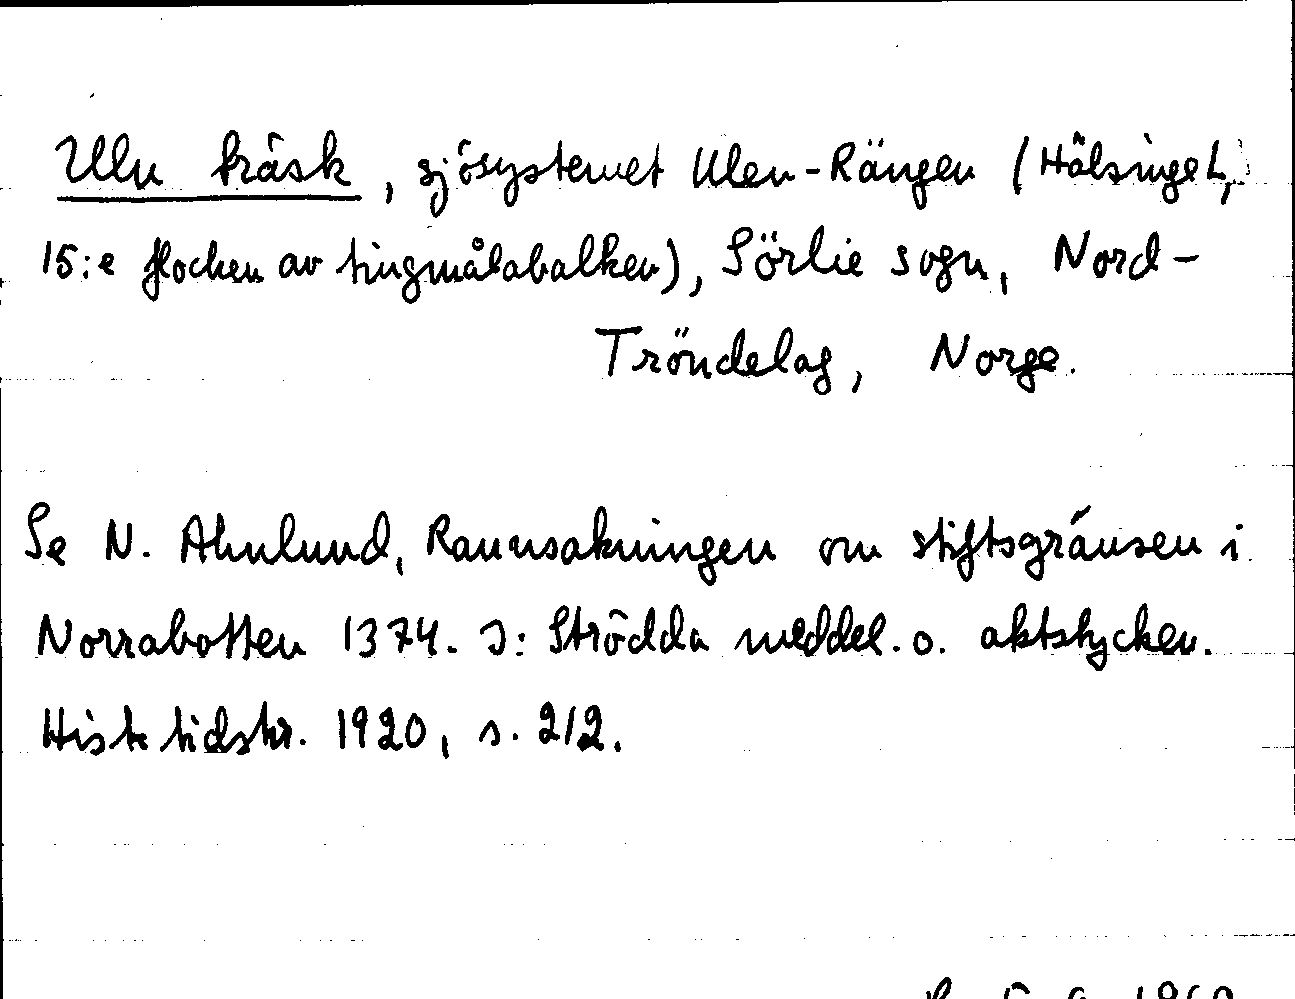 Ulu träsk, sjösystemet Ulen-Rängen (HälsingeL,
15:e flocken av tingmålabalken), Sörlie sogn, Nord-
Tröndelag, Norge.
Se N. Ahnlund, Rannsakningen om stiftsgränsen i
Norrabotten 1374. I: Strödda meddel. o. aktstycken.
Hist tidskr. 1920, s. 212.